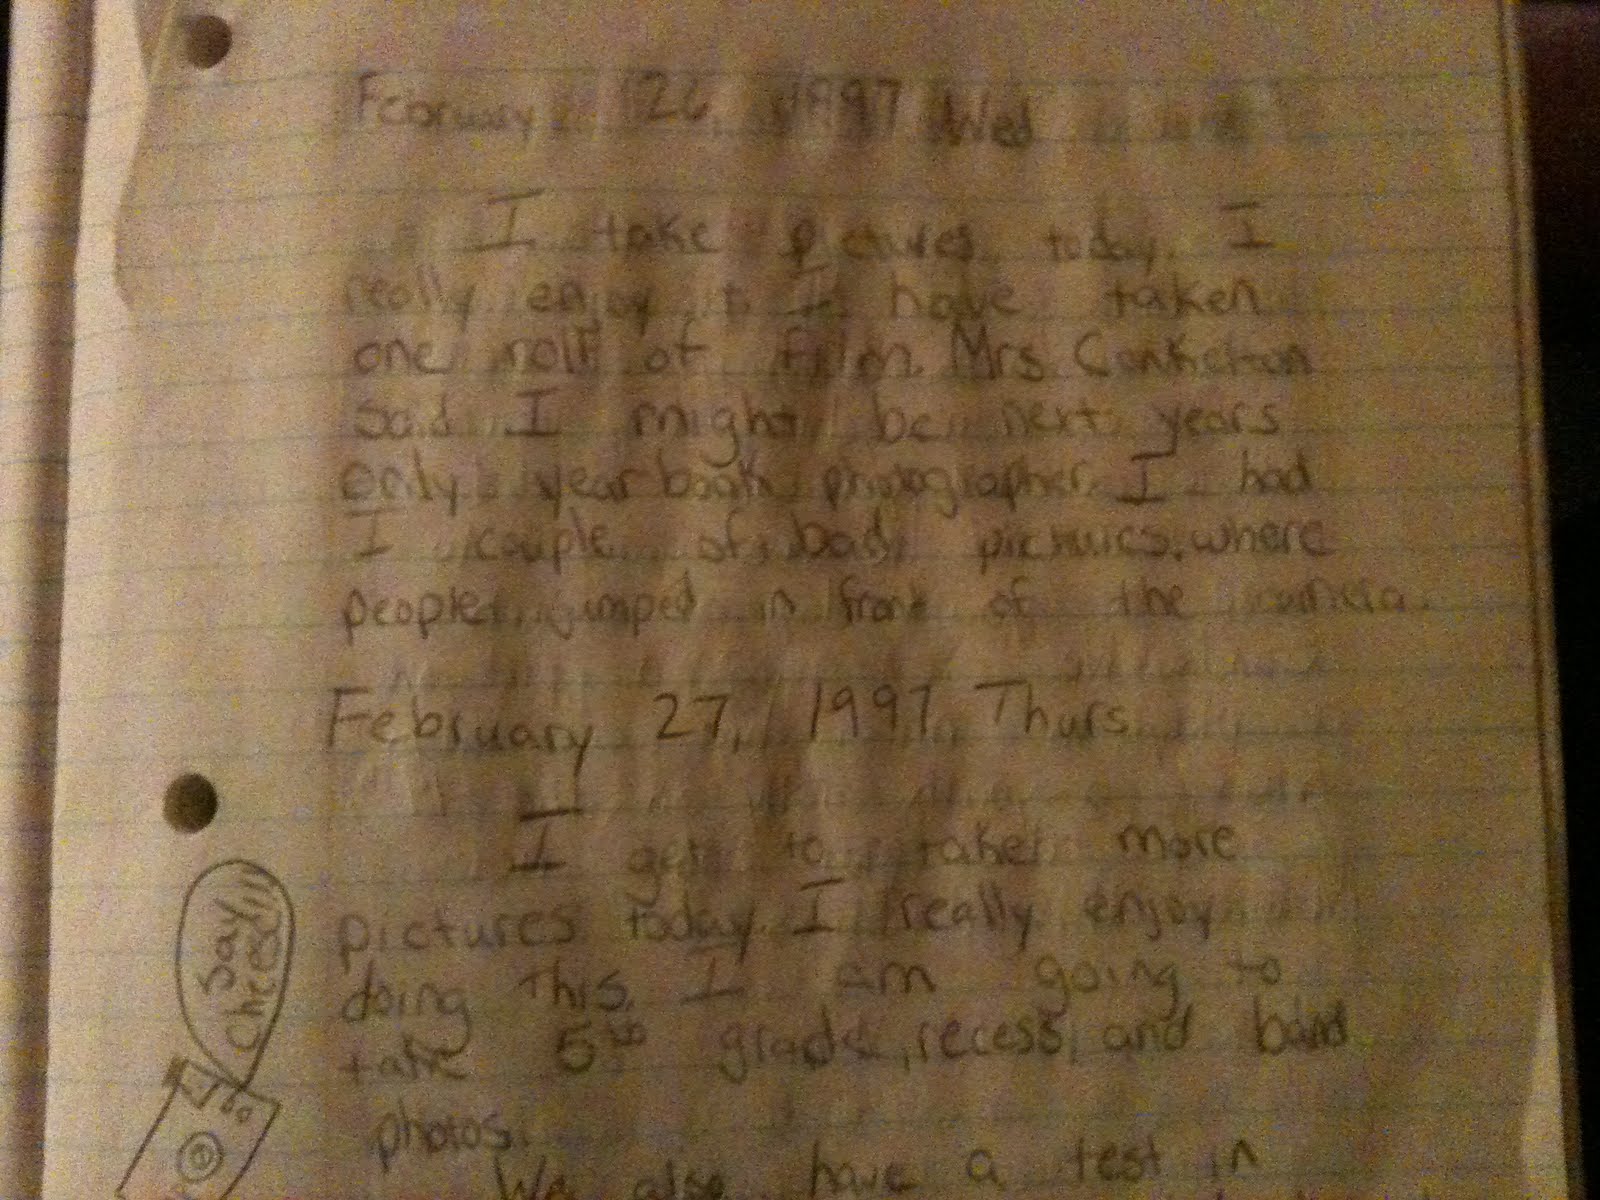 February 26, 1997 Wed
I take pictures today. I
really enjoy it I have taken
one roll of film. Mrs. Conkelton
said I might be next years
only yearbook photographer. I had
I couple of bad pictures, where
people jumped in front of the camera.
February 27, 1997, Thurs.
I get to take more
pictures today. I really enjoy
doing this. I am going to
take 5th grade, recess, and band
photos.
We also have a test in
Say
Cheese!!!